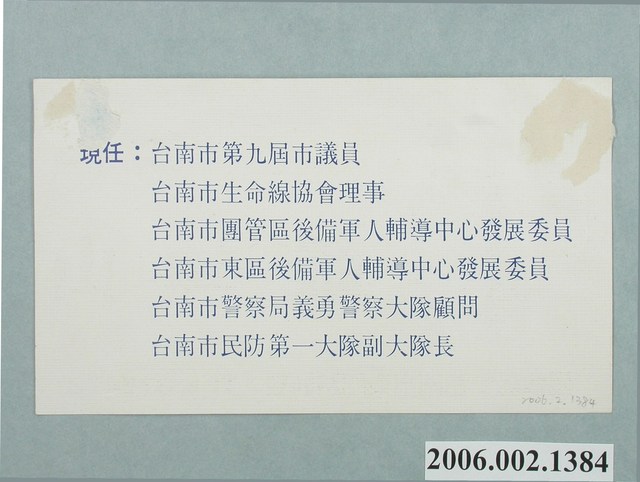 現任：台南市第九屆市議員
台南市生命線協會理事
台南市團管區後備軍人輔導中心發展委員
台南市東區後備軍人輔導中心發展委員
台南市警察局義勇警察大隊顧問
台南市民防第一大隊副大隊長
2006.2.1384
2006.002.1384